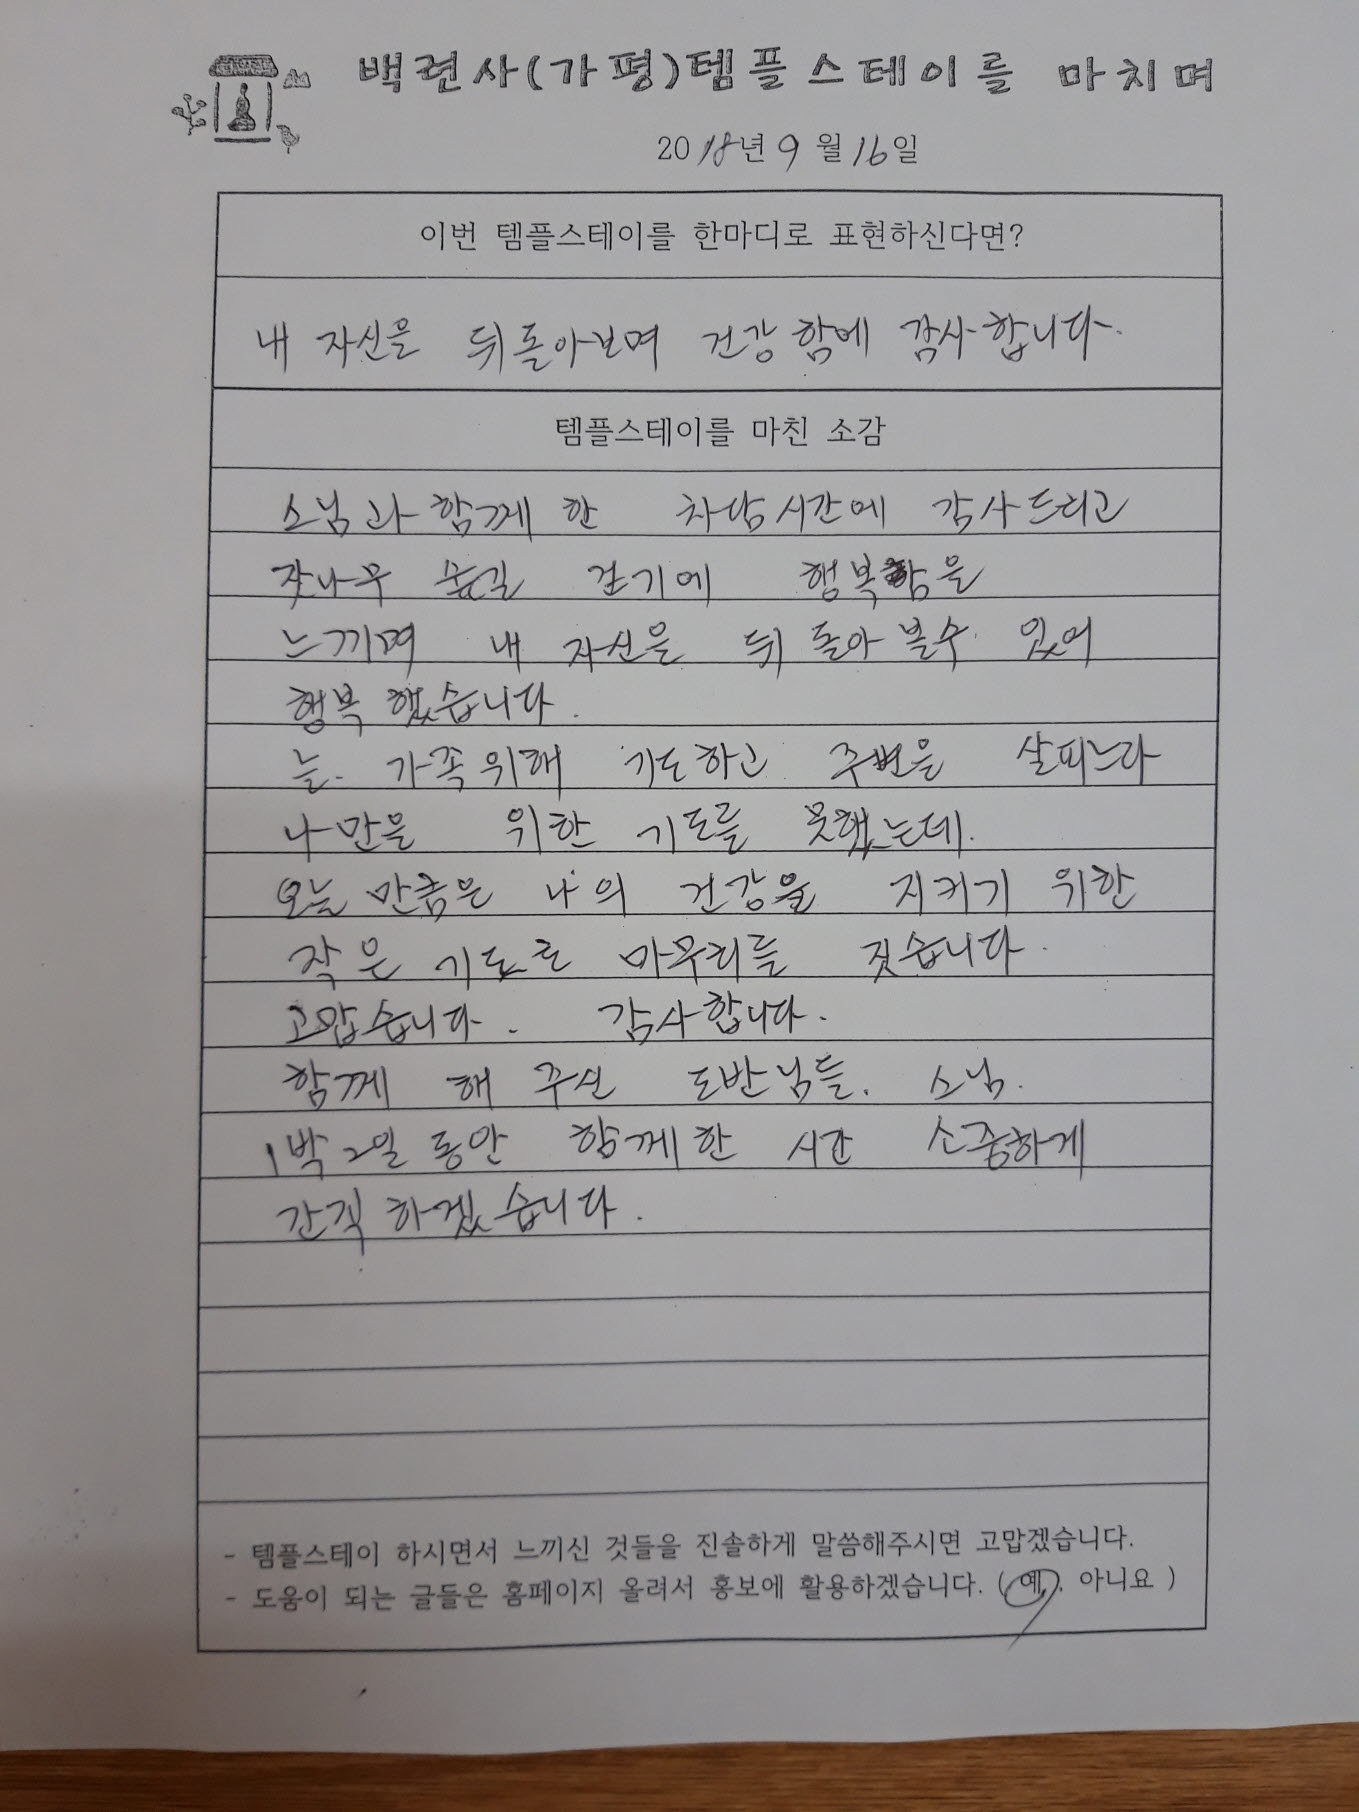 백련사(가평)템플스테이를 마치며
2018년 9월 16일
이번 템플스테이를 한마디로 표현하신다면?
내 자신을 뒤돌아보며 건강함에 감사합니다.
템플스테이를 마친 소감
스님과 함께 한 차담시간에 감사드리고
잣나무 숲길 걷기에 행복함을
느끼며 내 자신을 뒤 돌아 볼수 있어
행복 했습니다.
늘. 가족위해 기도하고 주변을 살피느라
나만을 위한 기도를 못했는데.
오늘 만큼은 나의 건강을 지키기 위한
작은 기도로 마무리를 짓습니다.
고맙습니다. 감사합니다.
함께 해 주신 도반님들. 스님.
1박 2일 동안 함께한 시간 소중하게
간직 하겠습니다.
- 템플스테이 하시면서 느끼신 것들을 진솔하게 말씀해주시면 고맙겠습니다.
- 도움이 되는 글들은 홈페이지 올려서 홍보에 활용하겠습니다. ( 예, 아니요 )